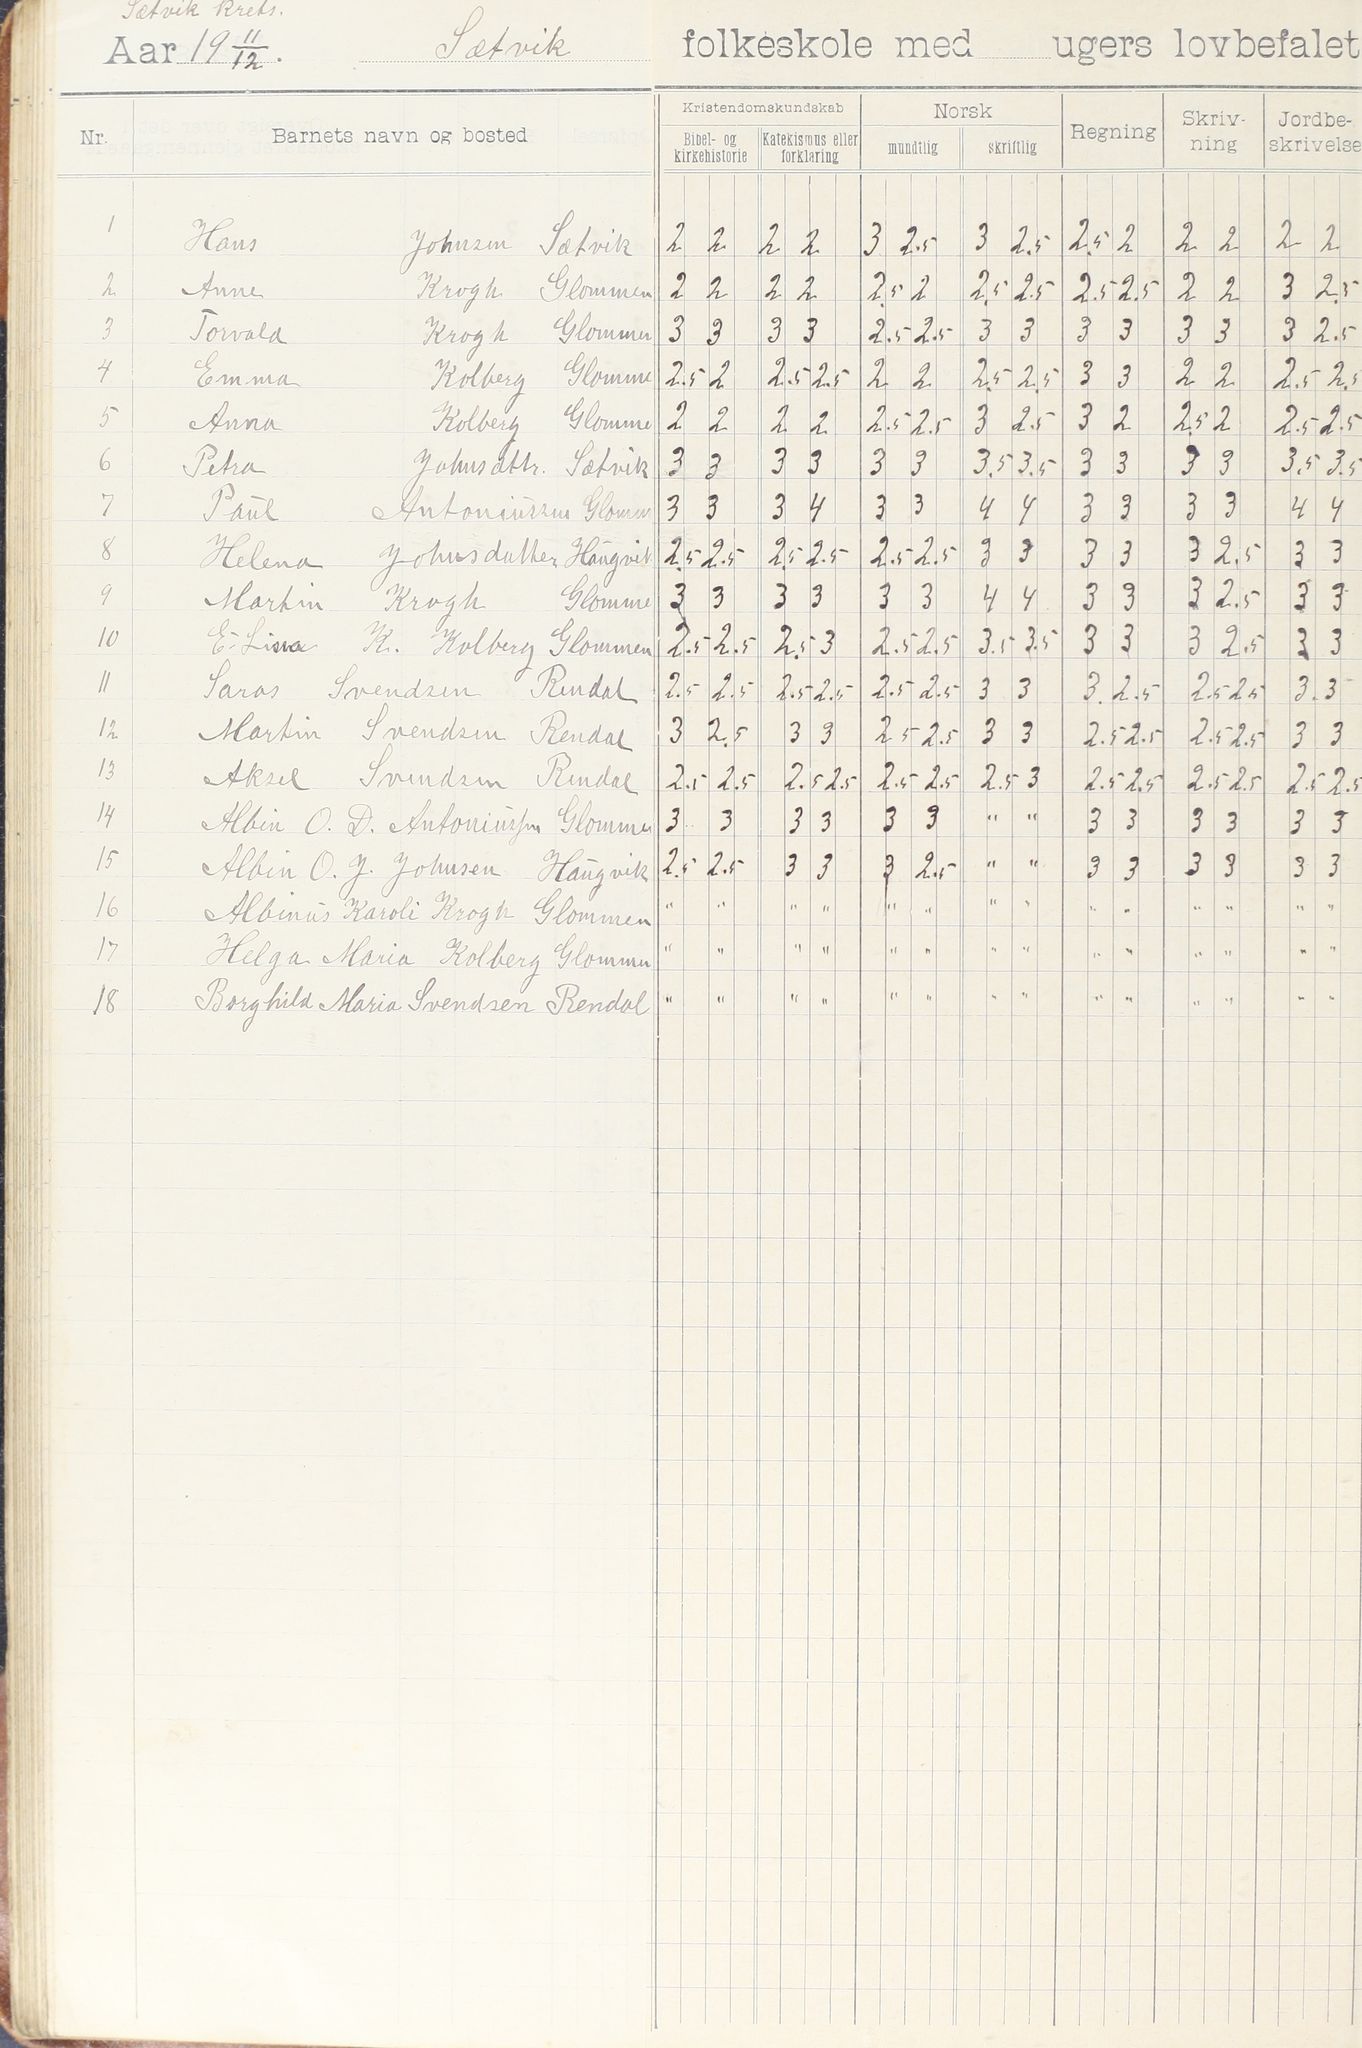 Sætvik krets.
Aar 19 11/12. Sætvik folkeskole med ugers lovbefalet
Nr. Barnets navn og bosted Kristendomskundskab Norsk Regning Skriv-ning Jordbe-skrivelse
Bibel- og kirkehistorie Katekismus eller forklaring mundtlig skriftlig
1 Hans Johnsen Sætvik 2 2 2 2 3 2.5 3 2.5 2.5 2 2 2 2 2
2 Anne Krogh Glommen 2 2 2 2 2.5 2 2.5 2.5 2.5 2.5 2 2 3 2.5
3 Torvald Krogh Glommen 3 3 3 3 2.5 2.5 3 3 3 3 3 3 3 2.5
4 Emma Kolberg Glomme 2.5 2 2.5 2.5 2 2 2.5 2.5 3 3 2 2 2.5 2.5
5 Anna Kolberg Glomme 2 2 2 2 2.5 2.5 3 2.5 3 2 2.5 2 2.5 2.5
6 Petra Johnsdttr. Sætvik 3 3 3 3 3 3 3.5 3.5 3 3 3 3 3.5 3.5
7 Paul Antoniussen Glomm 3 3 3 4 3 3 4 4 3 3 3 3 4 4
8 Helena Johnsdatter Haugvik 2.5 2.5 2.5 2.5 2.5 2.5 3 3 3 3 3 2.5 3 3
9 Martin Krogh Glomme 3 3 3 3 3 3 4 4 3 3 3 2.5 3 3
10 E. Lina K. Kolberg Glommen 2.5 2.5 2.5 3 2.5 2.5 3.5 3.5 3 3 3 2.5 3 3
11 Saras Svendsen Rendal 2.5 2.5 2.5 2.5 2.5 2.5 3 3 3 2.5 2.5 2.5 3 3
12 Martin Svendsen Rendal 3 2.5 3 3 2.5 2.5 3 3 2.5 2.5 2.5 2.5 3 3
13 Aksel Svendsen Rendal 2.5 2.5 2.5 2.5 2.5 2.5 2.5 3 2.5 2.5 2.5 2.5 2.5 2.5
14 Albin O. D. Antoniussen Glomme 3 3 3 3 3 3 " " 3 3 3 3 3 3
15 Albin O. J. Johnsen Haugvik 2.5 2.5 3 3 3 2.5 " " 3 3 3 3 3 3
16 Albinus Karoli Krogh Glommen " " " " " " " " " " " " " "
17 Helga Maria Kolberg Glommen " " " " " " " " " " " " " "
18 Borghild Maria Svendsen Rendal " " " " " " " " " " " " " "